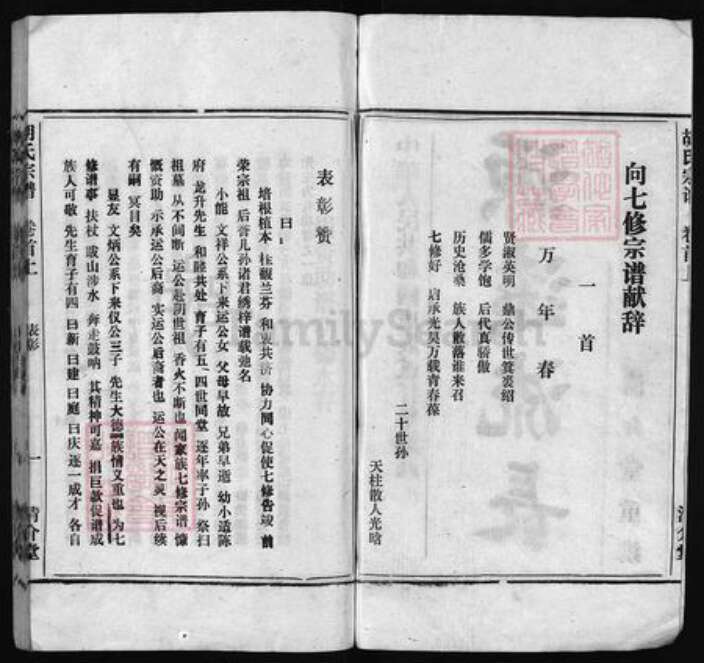 胡氏宗谱 卷首上
向七修宗谱献辞
一首
万年春
贤淑英明 鼎公传世箕裘绍
儒多学饱 后代真骄傲
历史沧桑 族人散落谁来召
七修好 启承光昊万载青春葆
二十世孙
天柱散人光晗
表彰赞
曰：
培根植本 桂馥兰芬 和衷共济 协力同心促使七修告竣 前
荣宗祖 后誉儿孙诸君绣梓谱载弛名
小能 文祥公系下来运公女 父母早故 兄弟早逝 幼小适陈
府 龙升先生 和睦共处 育子有五、四世同堂 逐年率子孙 祭扫
祖墓 从不间断 运公赴阴世祖 香火不断也 闻家族七修宗谱 慷
慨资助 示承运公后裔 实运公后裔者也 运公在天之灵 视后续
有嗣 冥目矣
显友 文炳公系下来仪公三子 先生大德 族情义重也 为七
修谱事 扶杖 跋山涉水 奔走鼓呐 其精神可嘉 捐巨款促谱成
族人可敬 先生育子有四 曰新 曰建 曰庭 曰庆逐一成才 各自
胡氏宗谱 卷首上 表彰 一 清介堂
FamilySearch